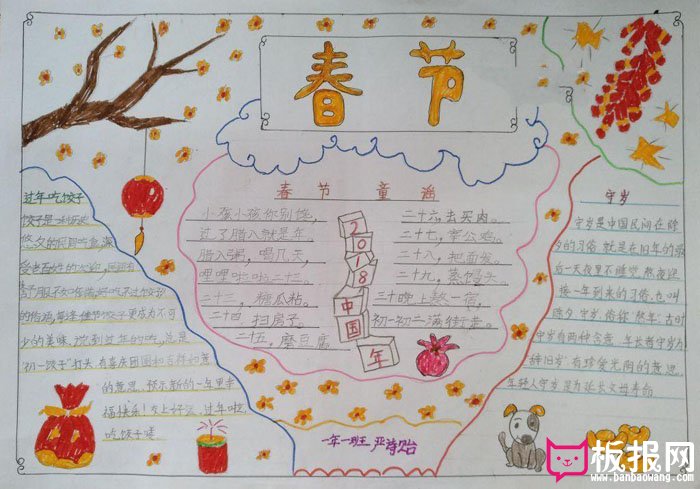 春节
春节童谣
小孩小孩你别馋，
过了腊八就是年。
腊八粥，喝几天，
哩哩啦啦二十三。
二十三，糖瓜粘。
二十四 扫房子。
二十五，磨豆腐
二十六，去买肉。
二十七，宰公鸡。
二十八，把面发。
二十九，蒸馒头
三十晚上熬一宿，
初一初二满街走。
2018中国年
过年吃饺子
饺子是一种历史
悠久的民间吃食，深
受老百姓的欢迎，民间有
的俗语，每逢佳节饺子更成为不可
少的美味，
初一饺子"打头，有喜庆团圆和吉祥如意
的意思，预示新的一年里幸
吃饺子喽
守岁
守岁是中国民间在除
夕的习俗，就是在旧年的最
后一天夜里不睡觉，熬夜迎
接新一年到来的习俗，也叫
除夕守岁，俗称"熬年"，古时
守岁有两种含意：年长者守岁为
"辞旧岁"有珍爱光阴的意思
年轻人守岁是为延长父母寿命
一年一班 严诗贻
板报网
www.banbaowang.com